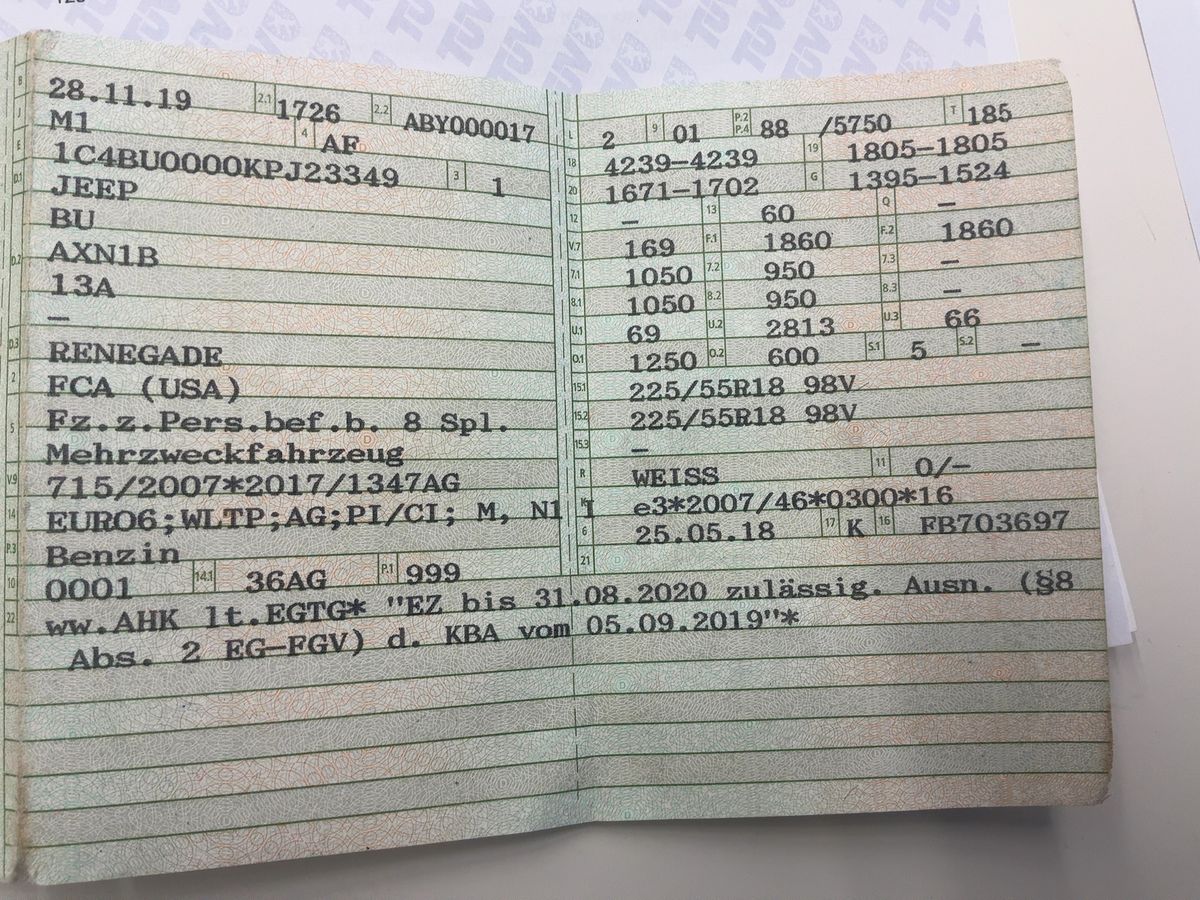 TÜV TÜV TÜV TÜV TÜV TÜV
B 28.11.19 2.1 1726 2.2 ABY000017
J M1 4 AF
E 1C4BU0000KPJ23349 3 1
D.1 JEEP
BU
D.2 AXN1B
13A
–
D.3 RENEGADE
2 FCA (USA)
5 Fz.z.Pers.bef.b. 8 Spl.
Mehrzweckfahrzeug
V.9 715/2007*2017/1347AG
14 EURO6;WLTP;AG;PI/CI; M, N1 I
P.3 Benzin
10 0001 14.1 36AG P.1 999
L 2 9 01 P.2 P.4 88 /5750 T 185
18 4239–4239 19 1805–1805
20 1671–1702 G 1395–1524
12 – 13 60 Q –
V.7 169 F.1 1860 F.2 1860
7.1 1050 7.2 950 7.3 –
8.1 1050 8.2 950 8.3 –
U.1 69 U.2 2813 U.3 66
O.1 1250 O.2 600 S.1 5 S.2 –
15.1 225/55R18 98V
15.2 225/55R18 98V
15.3 –
R WEISS 11 0/–
K e3*2007/46*0300*16
6 25.05.18 17 K 16 FB703697
21
22 ww.AHK lt.EGTG* "EZ bis 31.08.2020 zulässig. Ausn. (§8
Abs. 2 EG–FGV) d. KBA vom 05.09.2019"*